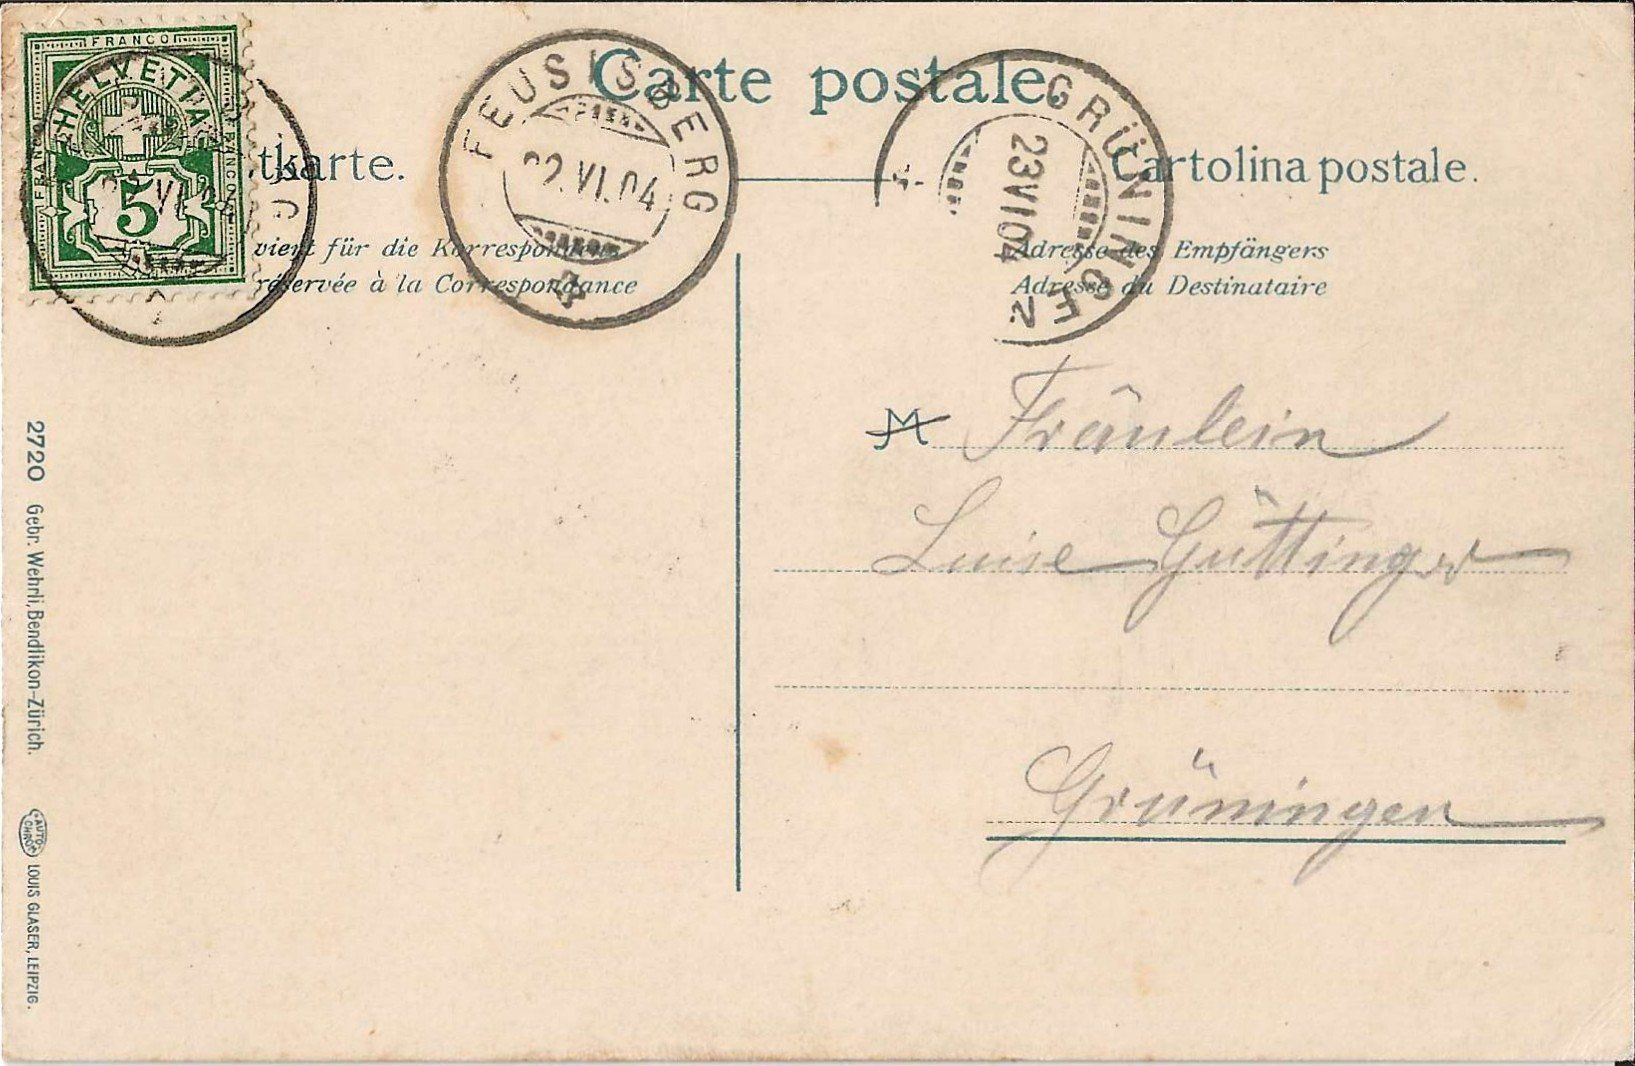 Carte postale.
tkarte.
Cartolina postale.
FRANCO
HELVETIA
FRANCO
FRANCO
5
FEUSISBERG
22.VI.04
GRÜNINGEN
23 VI 04
vient für die Korrespondenz
réservée à la Correspondance
Adresse des Empfängers
Adresse du Destinataire
M Fräulein
Luise Güttinger
Grüningen
2720 Gebr. Wehrli, Bendlikon-Zürich.
AUTO-CHROM LOUIS GLASER, LEIPZIG.